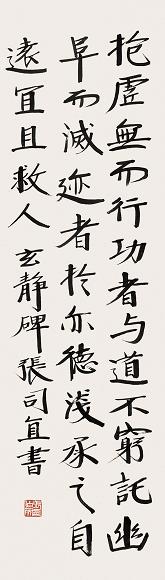 抢虚無而行功者与道不窮託幽
阜而滅迹者於亦德淺承之自
遠宜且救人玄静碑張司直書